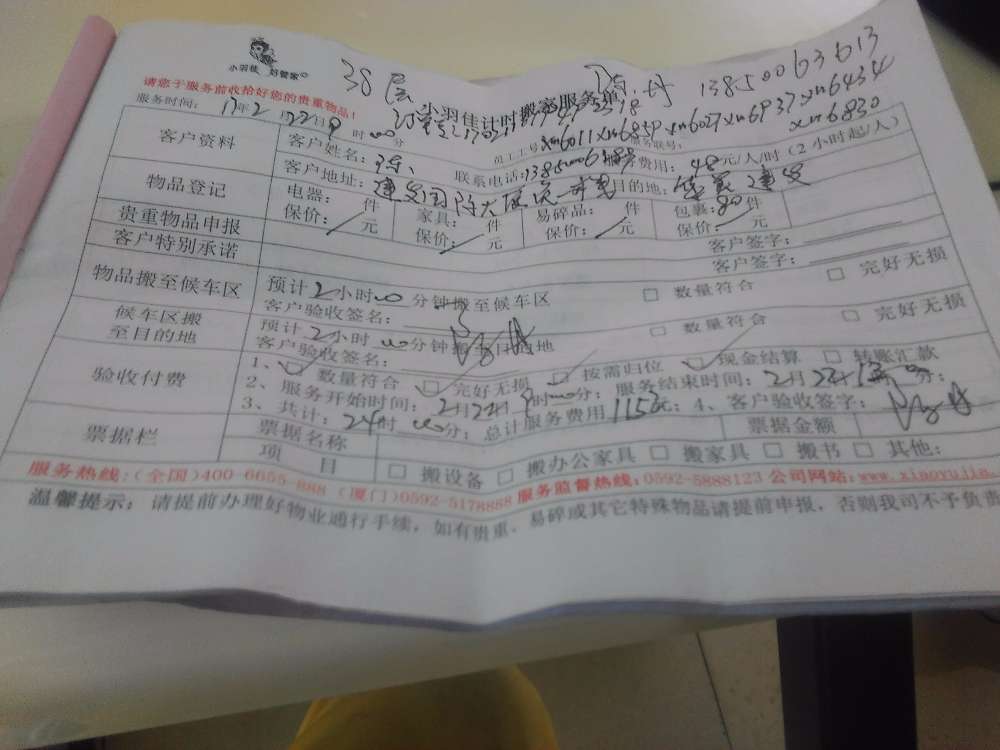 小羽佳 好管家
38层 陈丹 13850063613
请您于服务前收拾好您的贵重物品！
小羽佳计时搬家服务单
服务时间：17年2月22日9时00分
员工工号 xm6011 xm6859 xm6027 xm6937 xm6434 xm6830
客户资料
客户姓名：陈 联系电话：费用：48元/人/时（2小时起/人）
客户地址：建发国际大厦 目的地：建发
物品登记
电器：件 家具：件 易碎品：件 包裹：80件
贵重物品申报
保价：元 保价：元 保价：元 保价：元
客户特别承诺
客户签字：
客户签字：
物品搬至候车区
预计2小时00分钟搬至候车区 □ 数量符合 □ 完好无损
客户验收签名：
候车区搬至目的地
预计2小时00分钟搬至目的地 □ 数量符合 □ 完好无损
客户验收签名：
验收付费
1、□ 数量符合 □ 完好无损 □ 按需归位 □ 现金结算 □ 转账汇款
2、服务开始时间：2月22日9时00分；服务结束时间：2月22日13分；
3、共计：24时00分；总计服务费用1152元；4、客户验收签字：
票据栏
票据名称 票据金额
项目 □ 搬设备 □ 搬办公家具 □ 搬家具 □ 搬书 □ 其他：
服务热线：(全国)400-6655-888 (厦门)0592-5178888 服务监督热线：0592-5888123 公司网站：www.xiaoyujia.
温馨提示：请提前办理好物业通行手续，如有贵重、易碎或其它特殊物品请提前申报，否则我司不予负责